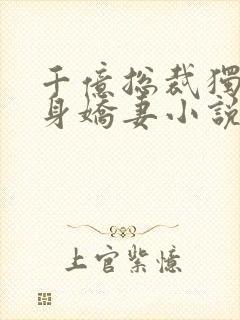 千億総裁獨
身嬌妻小説
上官紫憶